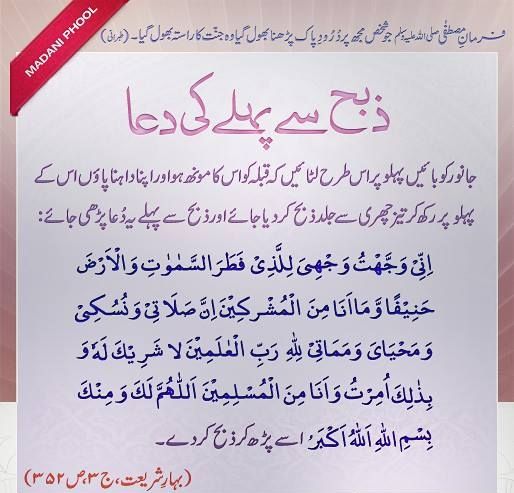 MADANI PHOOL
فرمانِ مصطفٰی صلی اللہ علیہ وسلم جو شخص مجھ پر دُرُودِ پاک پڑھنا بھول گیا وہ جنّت کا راستہ بھول گیا۔ (طبرانی)
ذبح سے پہلے کی دعا
جانور کو بائیں پہلو پر اس طرح لٹائیں کہ قبلہ کو اس کا مونھ ہو اور اپنا داہنا پاؤں اس کے
پہلو پر رکھ کر تیز چھری سے جلد ذبح کر دیا جائے اور ذبح سے پہلے یہ دُعا پڑھی جائے:
اِنِّیْ وَجَّهْتُ وَجْهِیَ لِلَّذِیْ فَطَرَ السَّمٰوٰتِ وَالْاَرْضَ
حَنِیْفًا وَّمَا اَنَا مِنَ الْمُشْرِکِیْنَ اِنَّ صَلَاتِیْ وَنُسُکِیْ
وَمَحْیَایَ وَمَمَاتِیْ لِلّٰهِ رَبِّ الْعٰلَمِیْنَ لَا شَرِیْكَ لَهٗ وَ
بِذٰلِكَ اُمِرْتُ وَاَنَا مِنَ الْمُسْلِمِیْنَ اَللّٰهُمَّ لَكَ وَمِنْكَ
بِسْمِ اللّٰهِ اَللّٰهُ اَکْبَرُ اسے پڑھ کر ذبح کر دے۔
(بہارِ شریعت، ج ۳، ص ۳۵۲)